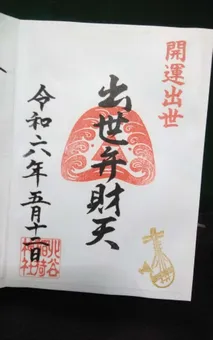 開運出世
出世弁財天
令和六年五月十二日